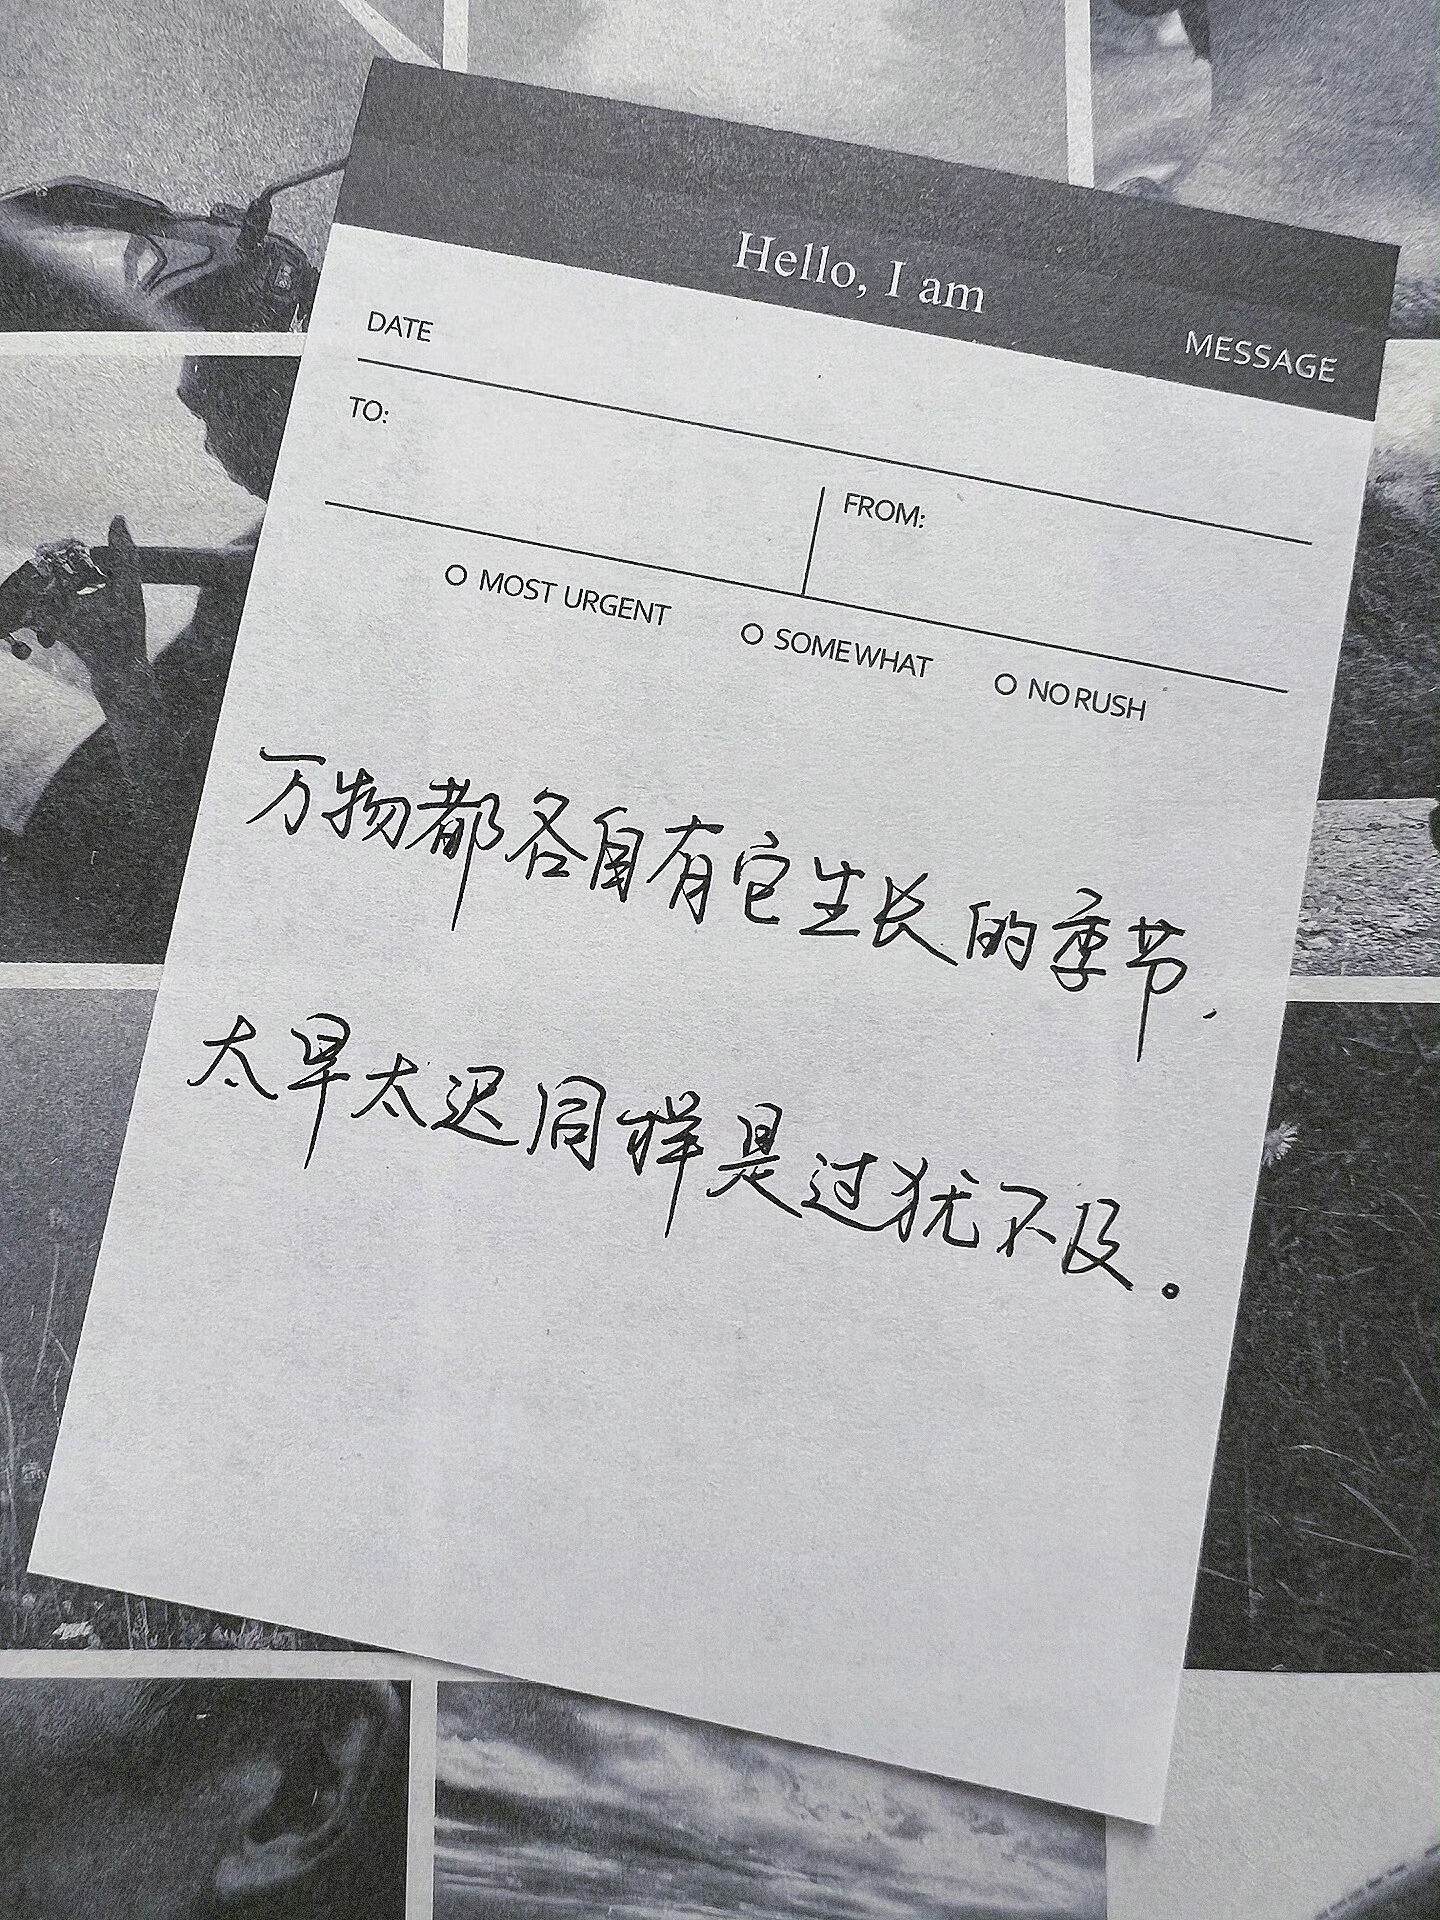 Hello, I am
MESSAGE
DATE
TO:
FROM:
MOST URGENT
SOMEWHAT
NO RUSH
万物都各自有它生长的季节.
太早太迟同样是过犹不及。